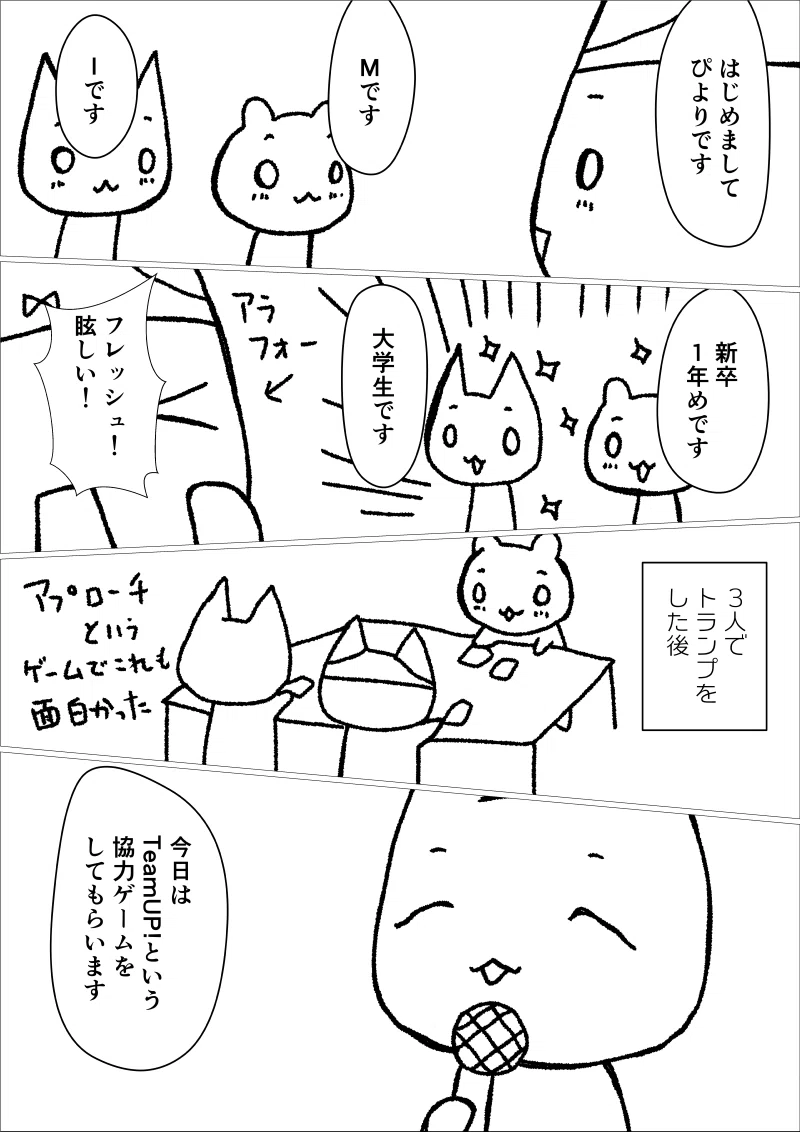 はじめまして
ぴよりです
Mです
Iです
新卒
1年めです
大学生です
アラ
フォー
フレッシュ!
眩しい!
3人で
トランプを
した後
アプローチ
という
ゲームでこれも
面白かった
今日は
TeamUP!という
協力ゲームを
してもらいます